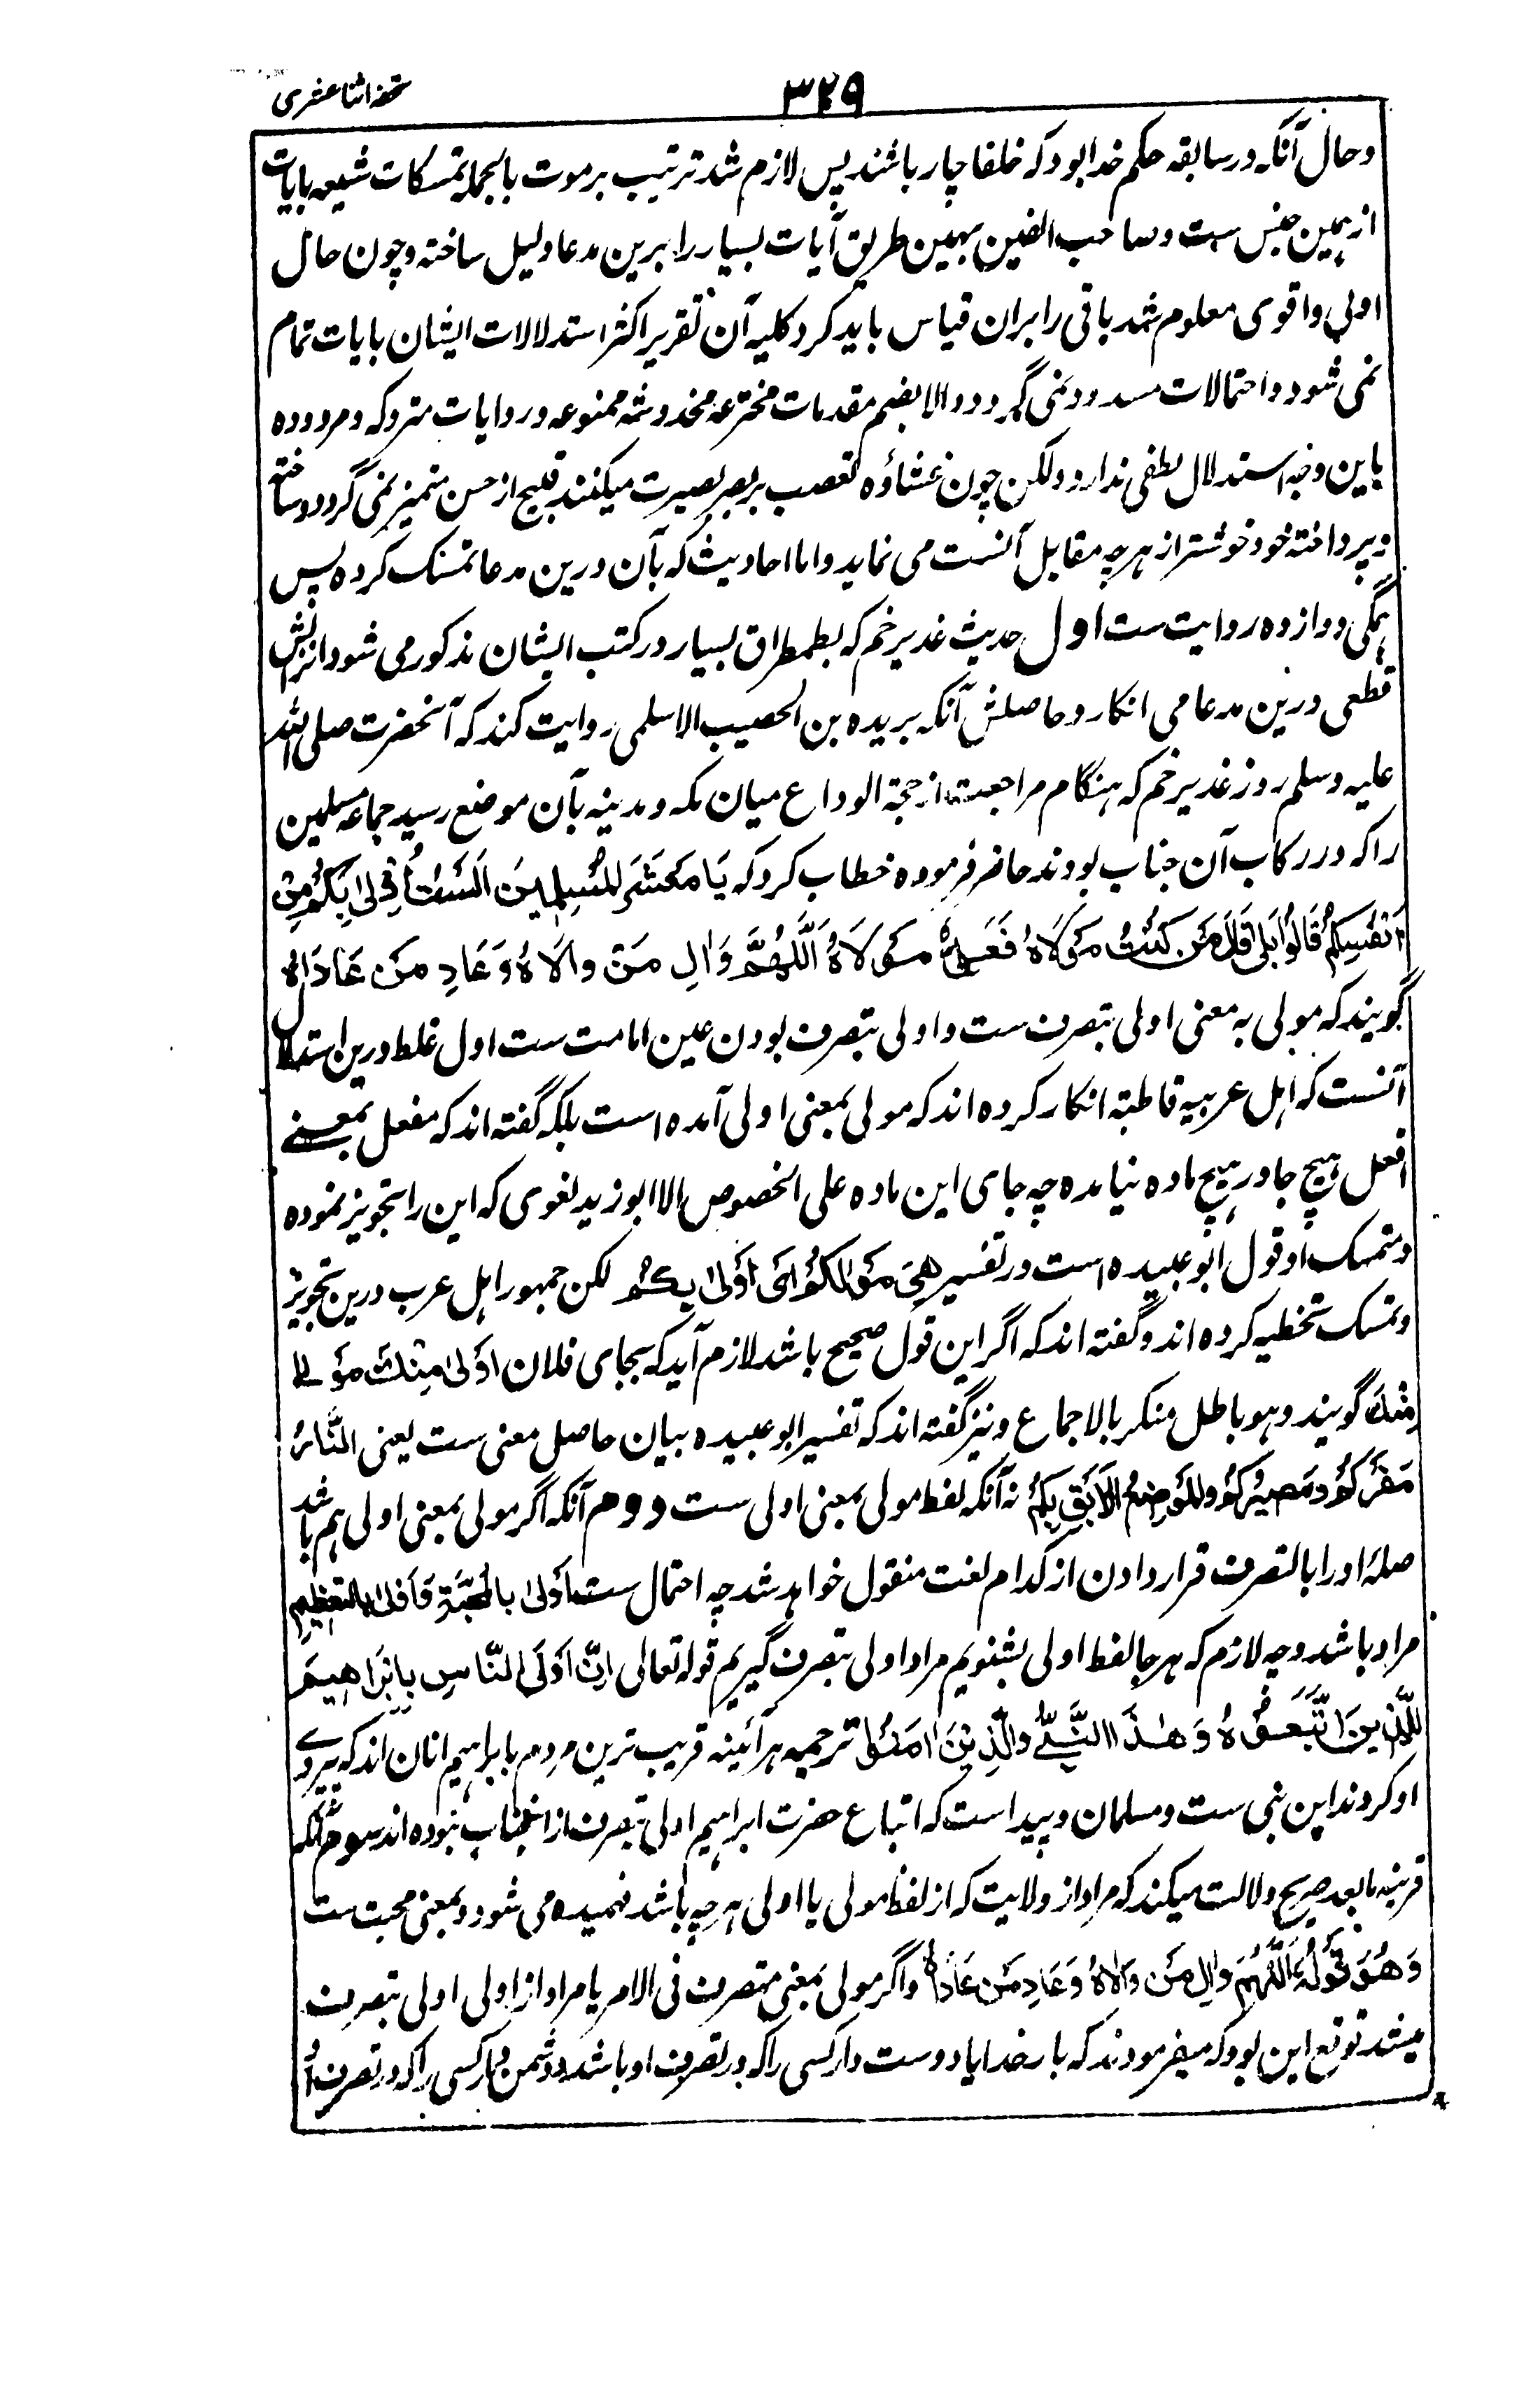 ۳۲۹ تحفه اثنا عشری
و حال آنکه در سابقه حکم خدا بود که خلفا چار باشند پس لازم شد ترتیب بر موت بالجمله تمسکات شیعه بآیات
ازهمین جنس ست و صاحب الفین بهمین طریق آیات بسیار را برین مدعا دلیل ساخته و چون حال
اولی و اقوی معلوم شد باقی را بران قیاس باید کرد کلیه آن تقریر اکثر استدلالات ایشان بآیات تمام
نمی شود و احتمالات مسدود نمی گردد والا بضم مقدمات مخترعه مخدوشه ممنوعه و روایات متروکه و مردوده
باین وجه استدلال لطفی ندارد ولکن چون غشاؤه تعصب بر بصر بصیرت میکنند قبیح از حسن متمیز نمی گردد و ساخته
و پرداخته خود خوشتر از هر چه مقابل آنست می نماید و اما احادیث که بآن درین مدعا تمسک کرده پس
همگی دوازده روایت ست اول حدیث غدیر خم که بطمطراق بسیار در کتب ایشان مذکور می شود و انرا نص
قطعی درین مدعا می انکار و حاصلش آنکه بریده بن الحصیب الاسلمی روایت کند که آنحضرت صلی الله
علیه وسلم روز غدیر خم که هنگام مراجعت از حجة الوداع میان مکه و مدینه بآن موضع رسید جماعه مسلمین
را که در رکاب آن جناب بودند حاضر فرموده خطاب کرد که یَا مَعْشَرَ الْمُسْلِمِینَ اَلَسْتُ اَوْلیٰ بِکُمْ مِنْ
اَنْفُسِکُمْ قَالُوْا بَلیٰ قَالَ مَنْ کُنْتُ مَوْلَاهُ فَعَلِیٌّ مَوْلَاهُ اَللّٰهُمَّ وَالِ مَنْ والَاهُ وَعَادِ مَنْ عَادَاهُ
گویند که مولی به معنی اولی بتصرف ست و اولی بتصرف بودن عین امامت ست اول غلط درین استدلال
آنست که اهل عربیه قاطبة انکار کرده اند که مولی بمعنی اولی آمده است بلکه گفته اند که مفعل بمعنے
افعل هیچ جا در هیچ ماده نیامده چه جای این ماده علی الخصوص الا ابو زید لغوی که این را تجویز نموده
و متمسک او قول ابو عبیده است در تفسیر هِیَ مَوْلٰکُمْ اَیْ اَوْلیٰ بِکُمْ لکن جمهور اهل عرب درین تجویز
و تمسک تخطیه کرده اند و گفته اند که اگر این قول صحیح باشد لازم آید که بجای فلان اَوْلیٰ مِنْكَ مَوْلے
مِنْكَ گویند و هو باطل منکر بالاجماع و نیز گفته اند که تفسیر ابو عبیده بیان حاصل معنی ست یعنی النَّارُ
مَقَرُّکُمْ وَمَصِیْرُکُمْ وَالْمَوْضِعُ اللَّائِقُ بِکُمْ نه آنکه لفظ مولی بمعنی اولی ست دوم آنکه اگر مولی بمعنی اولی هم باشد
صلهٔ او را بالتصرف قرار دادن از کدام لغت منقول خواهد شد چه احتمال ست اَوْلیٰ بِالْمَحَبَّةِ وَاَوْلیٰ بِالتَّعْظِیمِ
مراد باشد و چه لازم که هر جا لفظ اولی بشنویم مراد اولی بتصرف گیریم قوله تعالی اِنَّ اَوْلَی النَّاسِ بِاِبْرَاهِیمَ
لَلَّذِینَ اتَّبَعُوْهُ وَهٰذَا النَّبِیُّ وَالَّذِیْنَ اٰمَنُوْا ترجمه هر آئینه قریب ترین مردم بابراهیم انان اند که پیروی
او کردند این نبی ست و مسلمان و پیداست که اتباع حضرت ابراهیم اولی بتصرف از انجناب نبوده اند سوم آنکه
قرینه ما بعد صریح دلالت میکند که مراد از ولایت که از لفظ مولی یا اولی هر چه باشد فهمیده می شود و بمعنی محبت ست
وَهُوَ قَوْلُهُ اَللّٰهُمَّ وَالِ مَنْ وَالَاهُ وَعَادِ مَنْ عَادَاهُ و اگر مولی بمعنی متصرف فی الامر یا مراد از اولی اولی بتصرف
میشد توقع این بود که میفرمودند که بار خدایا دوست دار کسی را که در تصرف او باشد و دشمن دار کسی را که در تصرف او